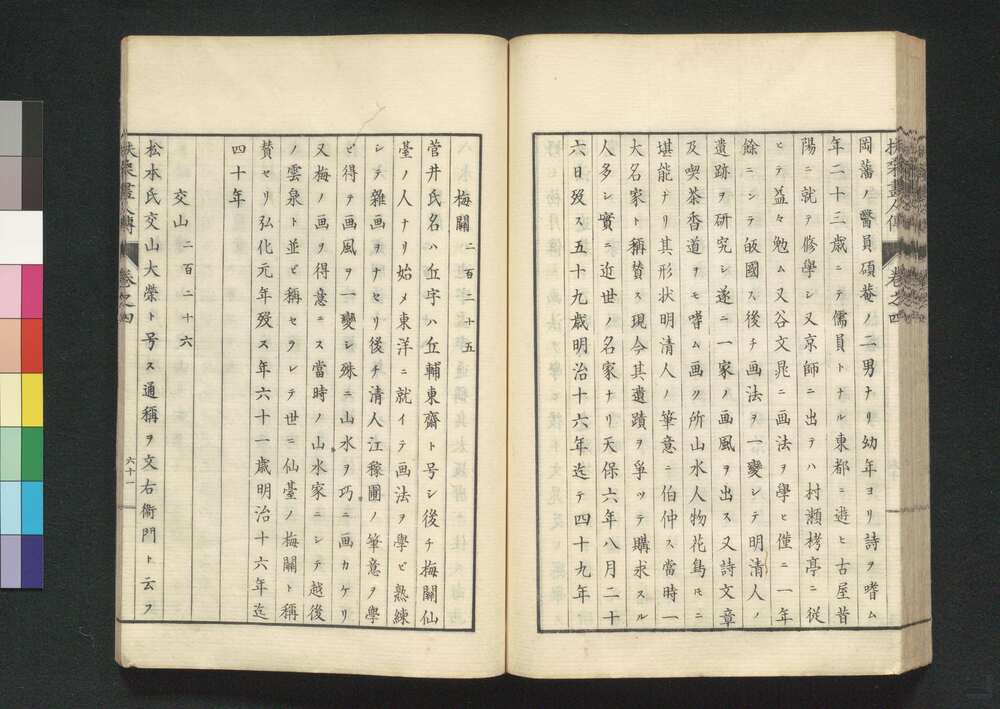 岡藩ノ醫員碩菴ノ二男ナリ幼年ヨリ詩ヲ嗜ム
年二十三歳ニテ儒員トナル東都ニ遊ヒ古屋昔
陽ニ就テ脩學シ又京師ニ出テハ村瀬栲亭ニ從
ヒテ益々勉ム又谷文晁ニ画法ヲ學ヒ僅ニ一年
餘ニシテ皈國ス後チ画法ヲ一變シテ明清人ノ
遺跡ヲ研究シ遂ニ一家ノ画風ヲ出ス又詩文章
及喫茶香道ヲモ嗜ム画ク所山水人物花鳥トモニ
堪能ナリ其形状明清人ノ筆意ニ伯仲ス當時一
大名家ト稱賛ス現今其遺蹟ヲ爭ツテ購求スル
人多シ實ニ近世ノ名家ナリ天保六年八月二十
六日歿ス五十九歳明治十六年迄テ四十九年
扶桑畫人傳
卷之四
梅關 二百二十五
菅井氏名ハ丘字ハ丘輔東齋ト号シ後チ梅關仙
臺ノ人ナリ始メ東洋ニ就イテ画法ヲ學ビ熟練
シテ雜画ヲナセリ後チ清人江稼圃ノ筆意ヲ學
ビ得テ画風ヲ一變シ殊ニ山水ヲ巧ニ画カケリ
又梅ノ画ヲ得意ニス當時ノ山水家ニシテ越後
ノ雲泉ト並ビ稱セラレテ世ニ仙臺ノ梅關ト稱
賛セリ弘化元年歿ス年六十一歳明治十六年迄
四十年
交山 二百二十六
松本氏交山大榮ト号ス通稱ヲ文右衞門ト云フ
扶桑畫人傳
卷之四
六十一